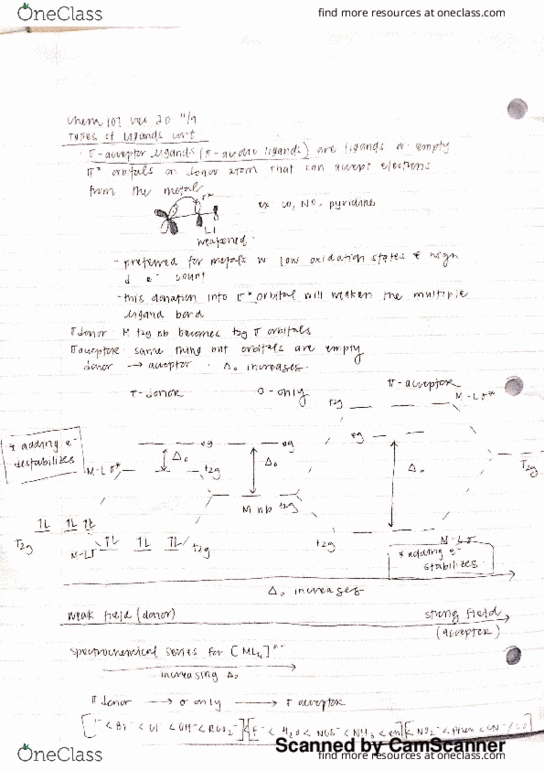 OneClass
find more resources at oneclass.com
Chem 107 Lec 20 11/9
Types of Ligands cont
π-acceptor ligands (π-acidic ligands) are ligands w empty
π* orbitals on donor atom that can accept electrons
from the metal
π*
ex CO, NO, pyridine
weakened
- preferred for metals w low oxidation states & high
d e⁻ count
- this donation into π* orbital will weaken the multiple
ligand bond
π donor M t2g nb becomes t2g π orbitals
π acceptor same thing but orbitals are empty
donor → acceptor Δo increases
π-donor σ-only π-acceptor
t2g M-L π*
* adding e⁻
destabilizes
eg eg eg
M-L π* t2g
Δo Δo Δo
T2g
M nb t2g
T2g
M-Lπ t2g t2g M-L π
* adding e⁻
stabilizes
Δo increases
weak field (donor) strong field
(acceptor)
spectrochemical series for [ML6]ⁿ⁻
increasing Δo
π donor → σ only → π acceptor
[I⁻ < Br⁻ < Cl⁻ < OH⁻ < RCO2⁻] < [F⁻ < H2O < NCS⁻ < NH3 < en] < [NO2⁻ < phen < CN⁻/CO]
Scanned by CamScanner
OneClass
find more resources at oneclass.com